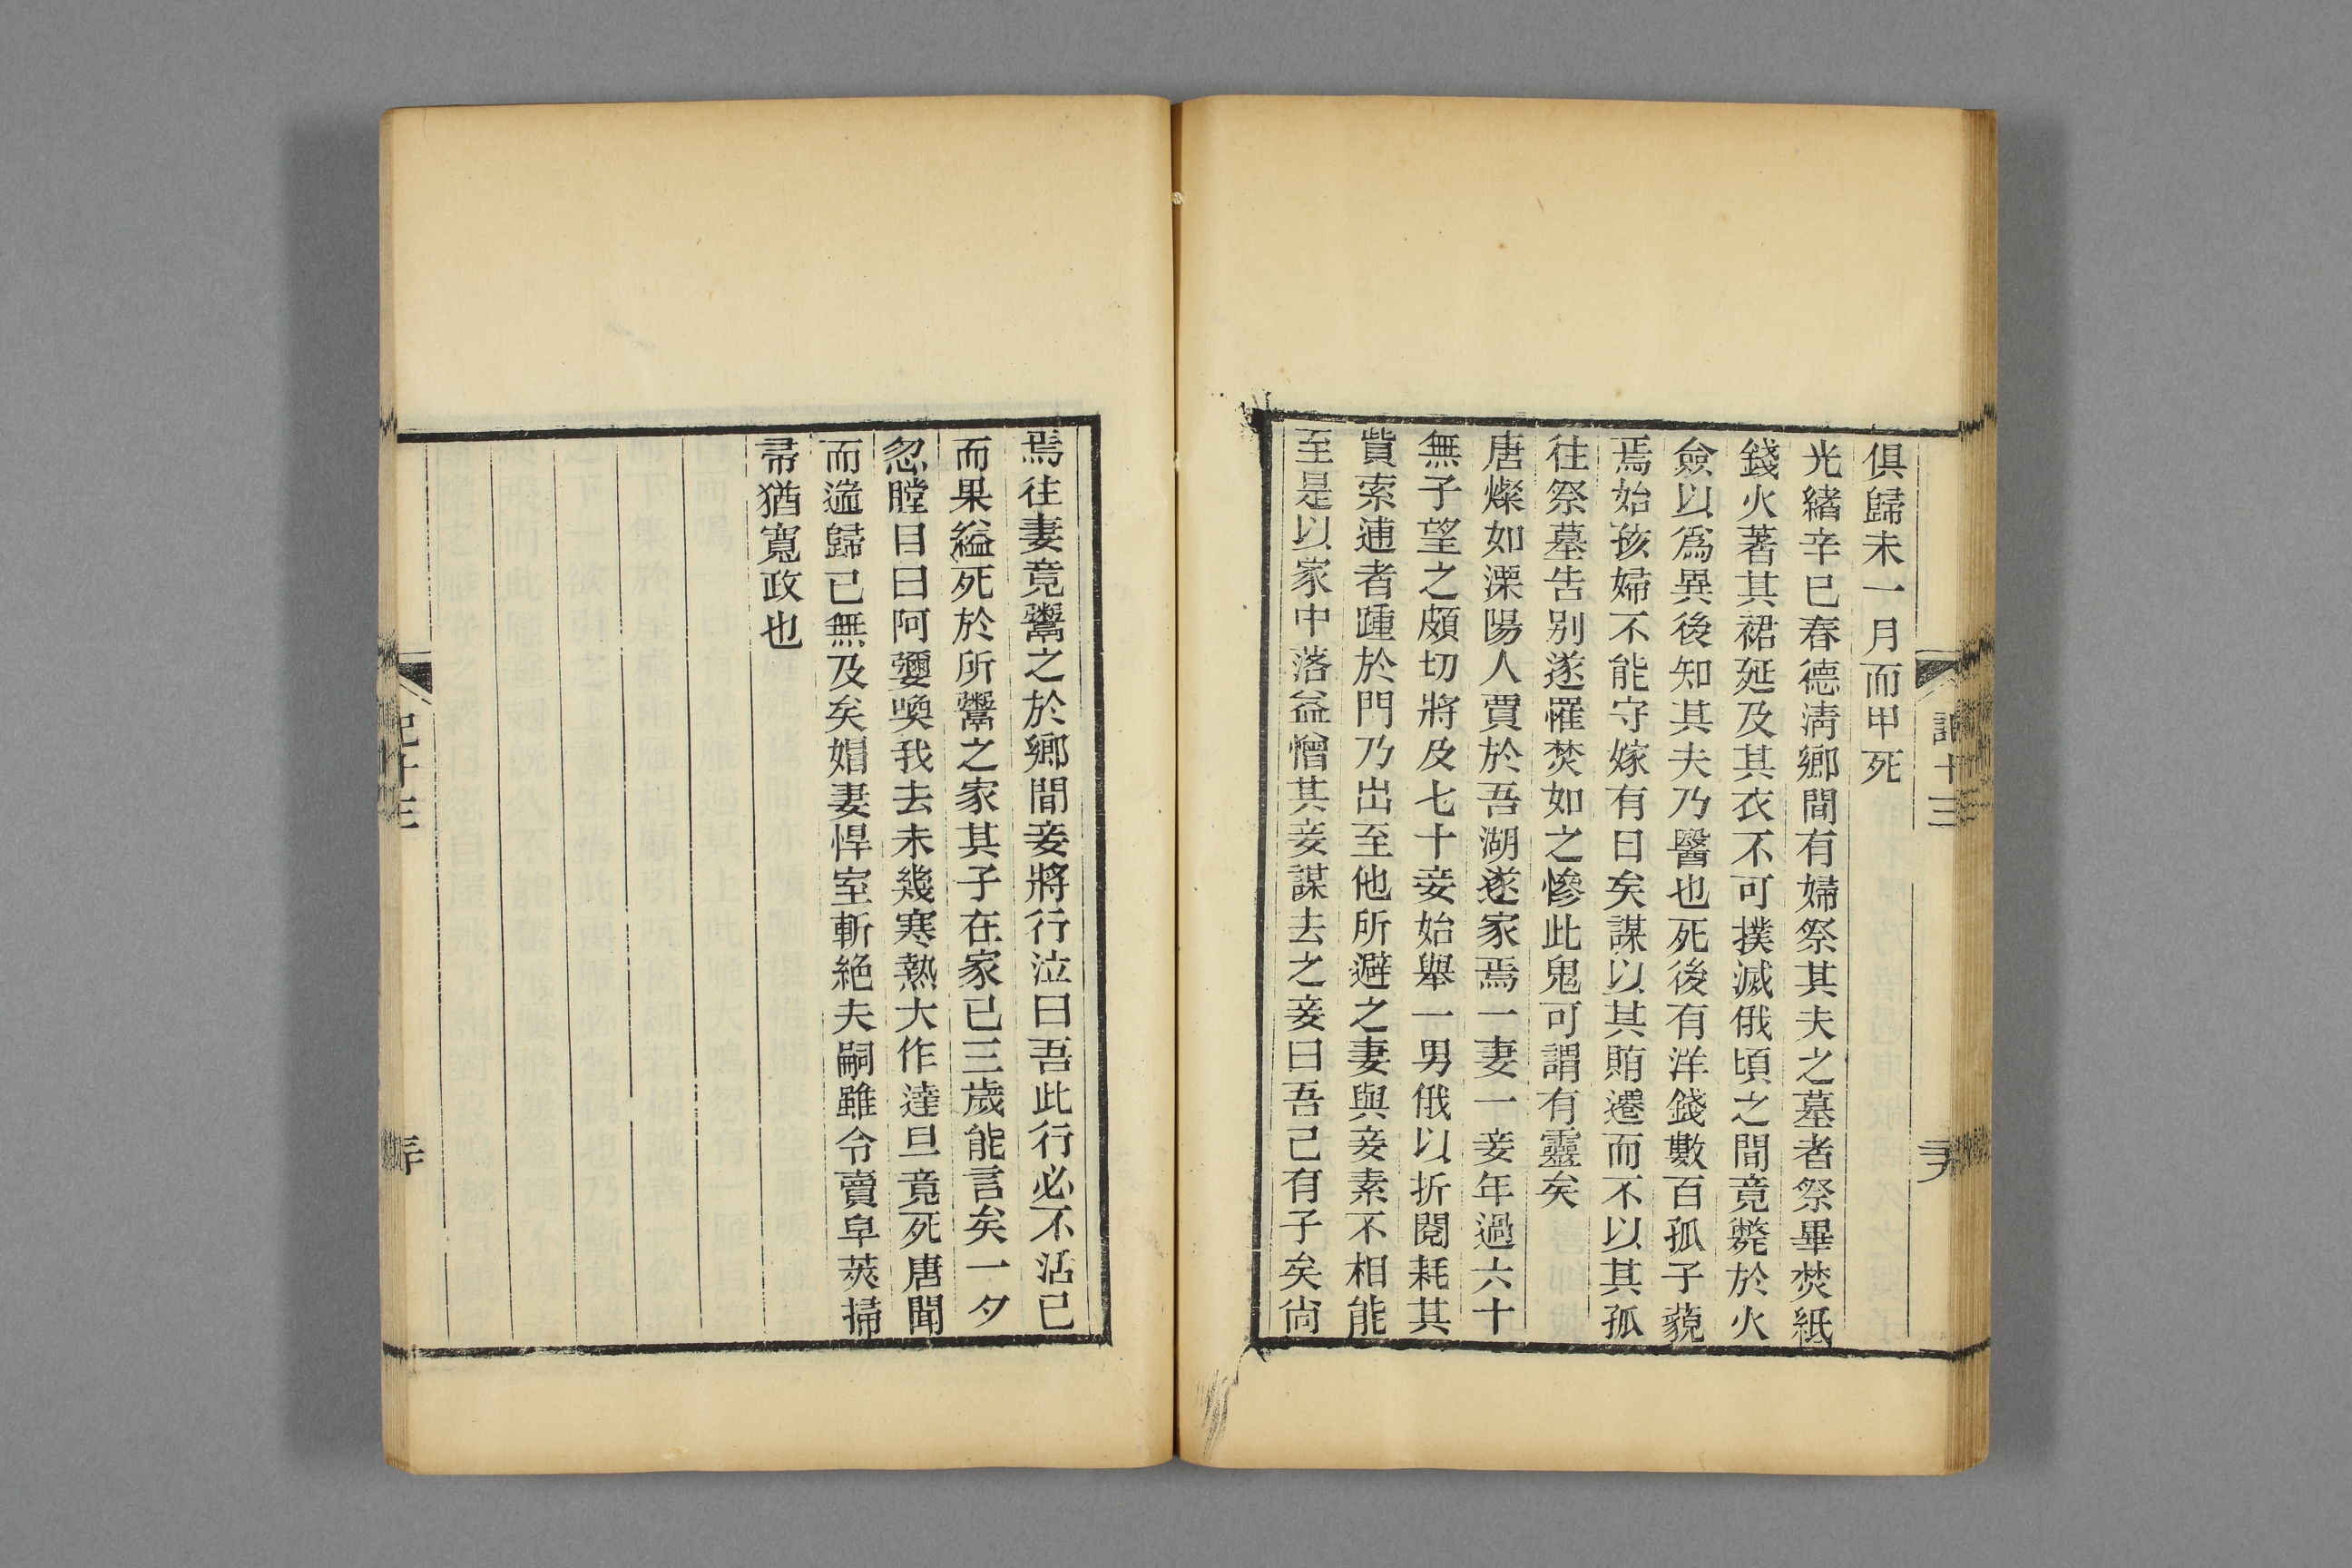 俱歸未一月而甲死
光緒辛巳春德清鄉間有婦祭其夫之墓者祭畢焚紙
錢火著其裙延及其衣不可撲滅俄頃之間竟斃於火
僉以為異後知其夫乃醫也死後有洋錢數百孤子藐
焉始孩婦不能守嫁有日矣謀以其賄遷而不以其孤
往祭墓告別遂罹焚如之慘此鬼可謂有靈矣
唐燦如溧陽人賈於吾湖遂家焉一妻一妾年過六十
無子望之頗切將及七十妾始舉一男俄以折閱耗其
貲索逋者踵於門乃出至他所避之妻與妾素不相能
至是以家中落益憎其妾謀去之妾曰吾己有子矣尙
焉往妻竟鬻之於鄉間妾將行泣曰吾此行必不活已
而果縊死於所鬻之家其子在家已三歲能言矣一夕
忽瞠目曰阿㜷喚我去未幾寒熱大作達旦竟死唐聞
而遄歸已無及矣娼妻悍室斬絕夫嗣雖令賣皁莢掃
帚猶寬政也